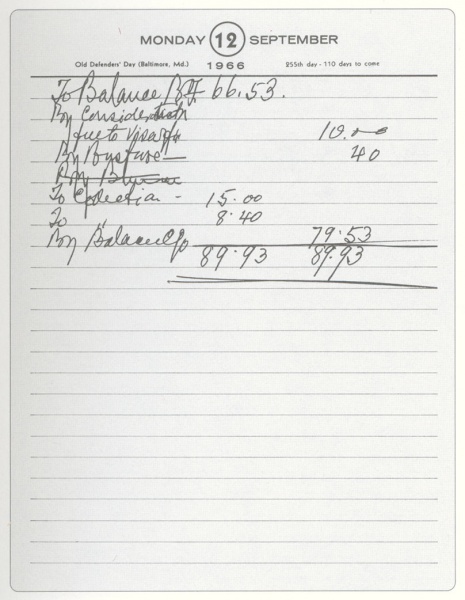 MONDAY 12 SEPTEMBER
Old Defenders' Day (Baltimore, Md.) 1966 255th day - 110 days to come
To Balance B/f 66.53.
By Consideration
due to Visa 10.00
By Busfare — 40
By
To Collection - 15.00
To " 8.40
By Balance c/o 79.53
89.93 89.93